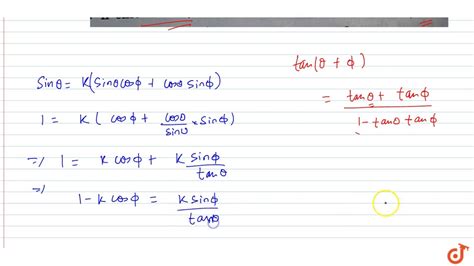 Sinθ = K(Sinθ cosϕ + cosθ sinϕ)
1 = K( cosϕ + cosθ/sinθ × Sinϕ)
⇒ 1 = K cosϕ + K sinϕ/tanθ
⇒ 1 - K cosϕ = K sinϕ/tanθ
tan(θ + ϕ)
= tanθ + tanϕ/1 - tanθ tanϕ
doubtnut